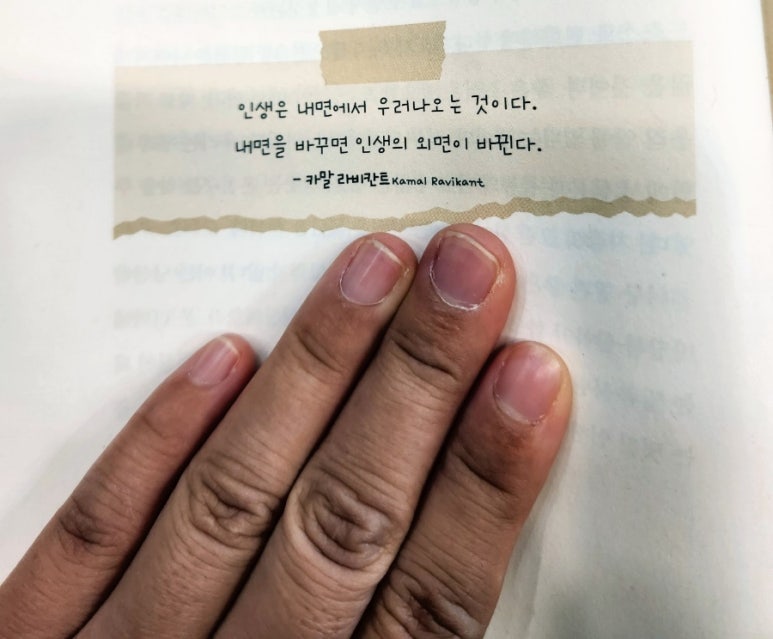 인생은 내면에서 우러나오는 것이다.
내면을 바꾸면 인생의 외면이 바뀐다.
- 카말 라비칸트 Kamal Ravikant